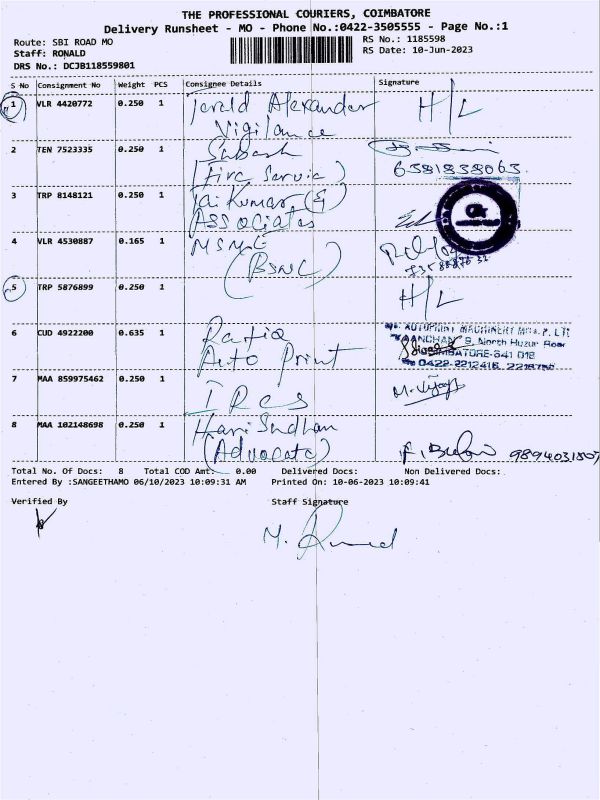 THE PROFESSIONAL COURIERS, COIMBATORE
Delivery Runsheet - MO - Phone No.:0422-3505555 - Page No.:1
Route: SBI ROAD MO
RS No.: 1185598
Staff: RONALD
RS Date: 10-Jun-2023
DRS No.: DCJB118559801
S No Consignment No Weight PCS Consignee Details Signature
1 VLR 4420772 0.250 1 Jerald Alexander H/L
Vigilance
2 TEN 7523335 0.250 1 Subash
(Fire Service) 6381838063
3 TRP 8148121 0.250 1 Jai Kumar (&)
Associates
4 VLR 4530887 0.165 1 MSME
(BSNL)
5 TRP 5876899 0.250 1 H/L
6 CUD 4922200 0.635 1
Auto Print
AUTOPRINT MACHINERY P. LTD
9, North Huzur Road
COIMBATORE-641 018
0422-2212416,
7 MAA 859975462 0.250 1
8 MAA 102148698 0.250 1 Hari Sudhan
(Advocate)
Total No. Of Docs: 8 Total COD Amt: 0.00 Delivered Docs: Non Delivered Docs:
Entered By :SANGEETHAMO 06/10/2023 10:09:31 AM Printed On: 10-06-2023 10:09:41
Verified By Staff Signature